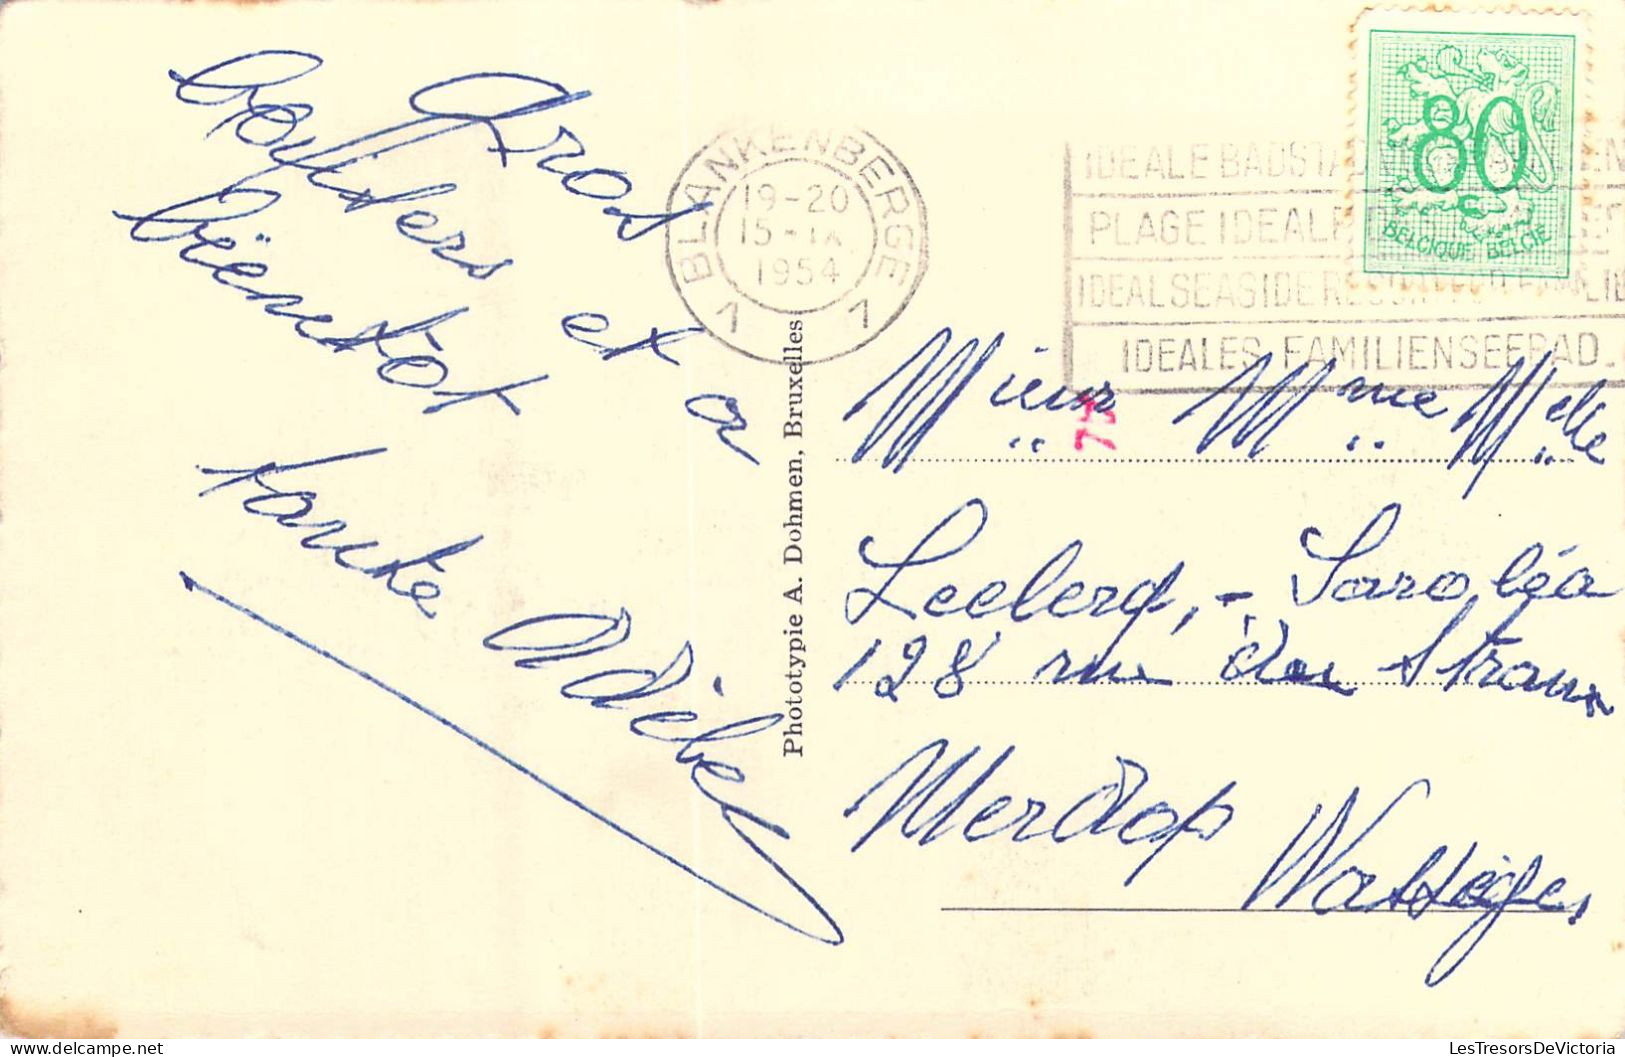 Gros
Boyiders et a
bientôt
tante Adèle
BLANKENBERGE
19-20
15-IX
1954
1 1
IDEALE BADSTA
PLAGE IDEALE
IDEAL SEASIDE RESORT
IDEALES FAMILIENSEEBAD.
80
BELGIQUE-BELGIË
Phototypie A. Dohmen, Bruxelles
Mieur Mme Melle
Leclercq, - Saroléa
128 rue des Straux
Merdop
Wasseiges
LesTresorsDeVictoria